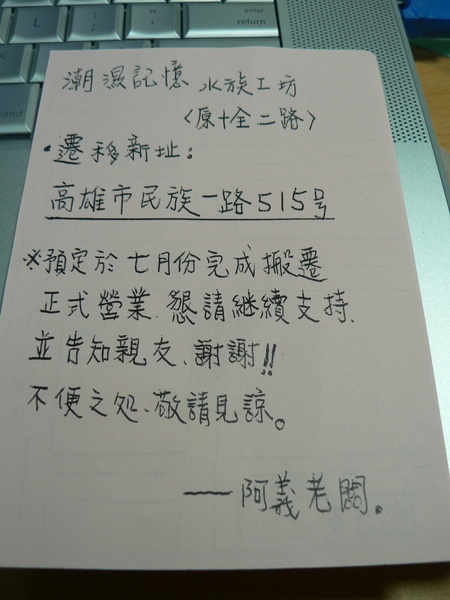 潮濕記憶 水族工坊
<原十全二路>
•遷移新址：
高雄市民族一路515号
※預定於七月份完成搬遷
正式營業、懇請繼續支持、
並告知親友、謝謝!!
不便之処、敬請見諒。
——阿義老闆。
enter
return
command
option